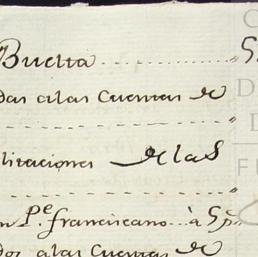 Buelta
das alas Cuentas de
litaciones de las
n P.e franciscano à 5 p.
dos alas Cuentas de